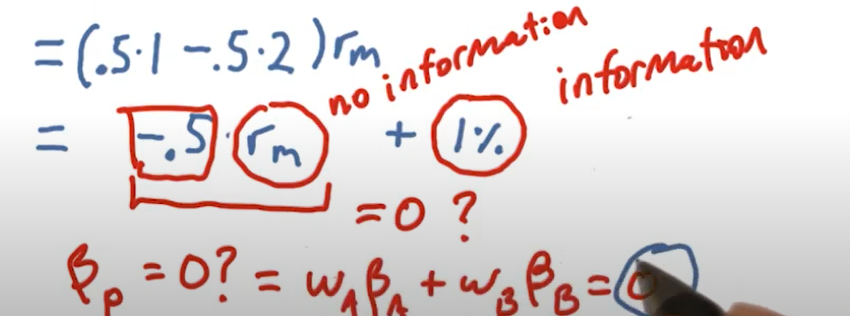 =(.5·1 -.5·2)rm
no information
information
= -.5·rm + 1%
=0?
βp = 0? = wAβA + wBβB = 0